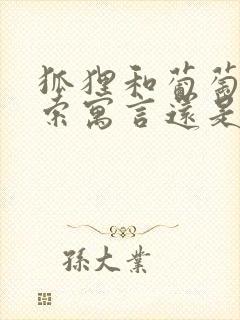 狐狸和葡萄
索寓言還是
孫大業